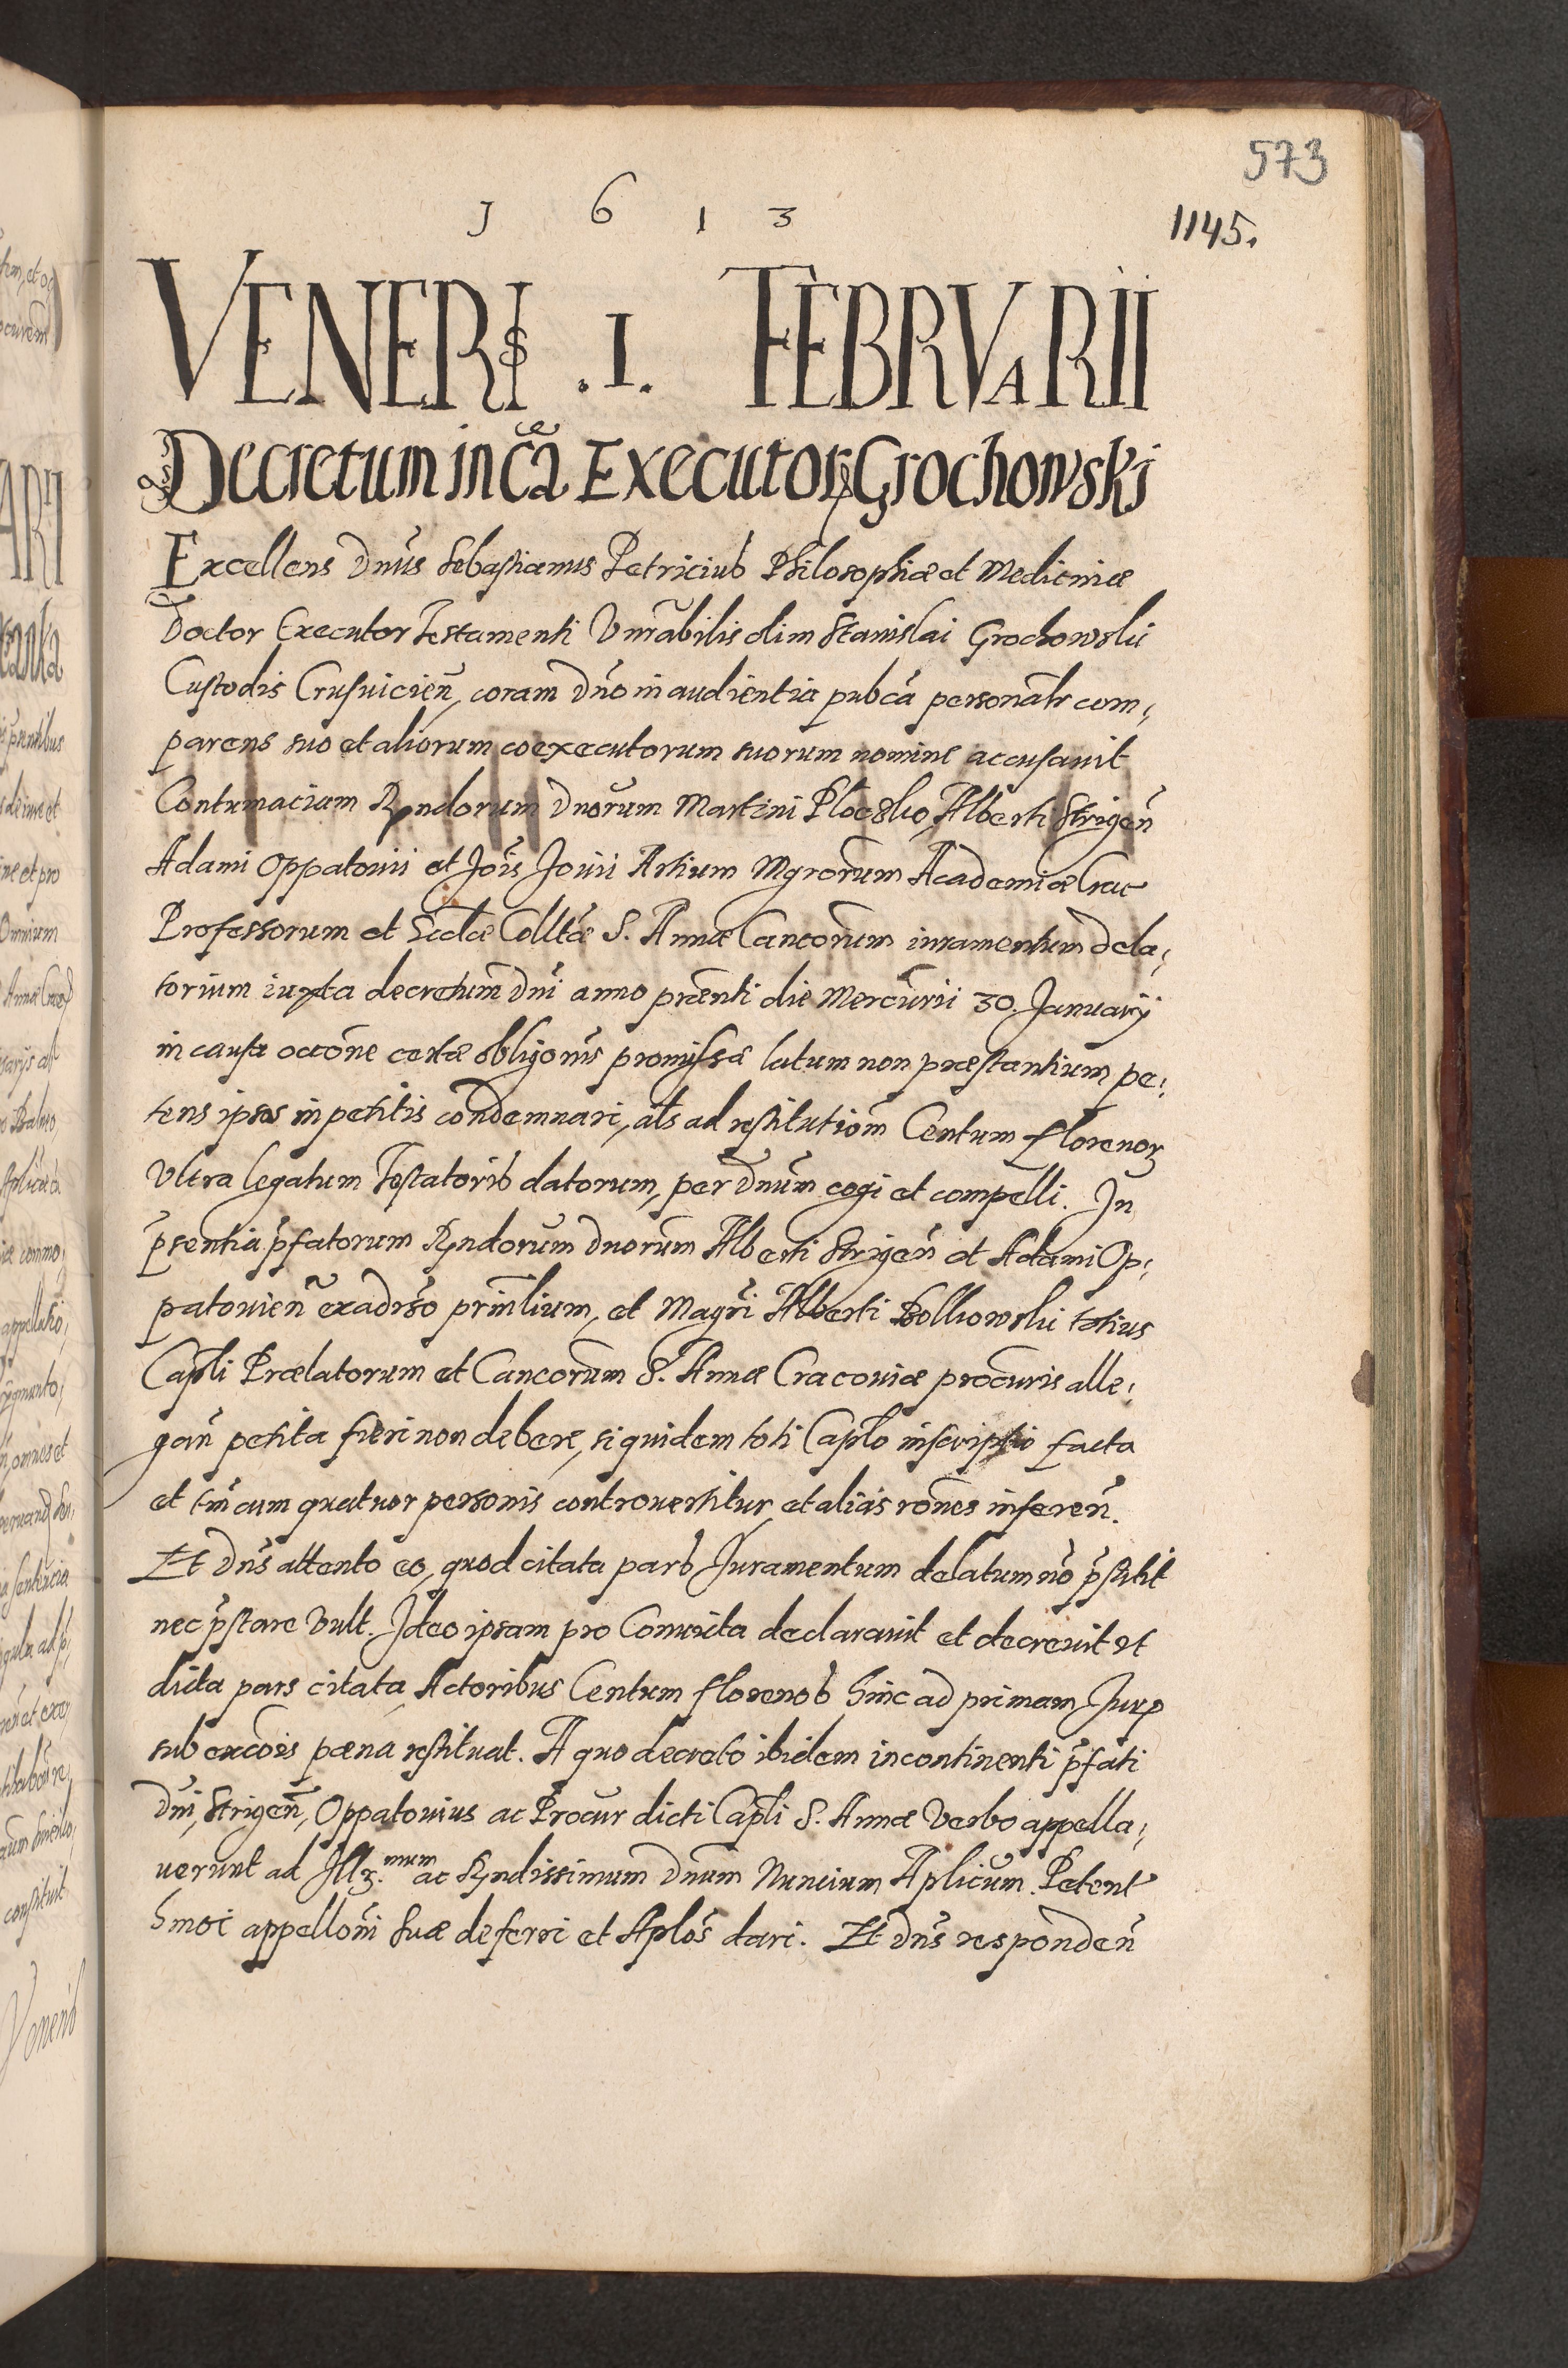 573
1 6 1 3
1145.
VENERIS .I. FEBRVARII
Decretum in cã Executor Grochowski
Excellens Dnus Sebastianus Petricius Philosophiæ et Medicinæ
Doctor Executor Testamenti Vnrabilis olim Stanislai Grochowski
Custodis Crusuicien̄, coram Dno in audientia pubca personalr com,
parens suo et aliorum coexecutorum suorum nomine accusauit
Contumaciam Rndorum Dnorum Martini Ploczko, Alberti Strigen̄
Adami Oppatouii et Jois Jouii Artium Mgrorum Academiæ Crac
Professorum et Eccæ Colltæ S. Annæ Cancorum iuramentum dela,
torium iuxta decretum Dni anno præenti die Mercurii 30. Januarij
in causa occone certæ obligonis promissæ latum non præstantium pe,
tens ipsos in petitis condemnari, als ad restitutiom Centum florenor
Vltra legatum Testatoris datorum, per Dnum cogi et compelli. In
pσsentia pσfatorum Rndorum Dnorum Alberti Strigen̄ et Adami Op,
patouien̄ ex aduso prinlium, et Magri Alberti Bolkowski totius
Capli Prælatorum et Cancorum S. Annæ Cracouiæ procuris alle,
gan̄ petita fieri non debere, siquidem toti Caplo inscriptio facta
et tm̄ cum quatuor personis controuertitur, et alias rones inferen̄.
Et Dns attento eo, quod citata pars Iuramentum delatum nō pσstitit
nec pσstare Vult. Ideo ipsam pro Conuicta declarauit et decreuit vt
dicta pars citata Actoribus Centum florenos hinc ad primam Jurp
sub excois pæna restituat. A quo decreto ibidem incontinenti pσfati
Dni, Strigen̄, Oppatouius ac Procur dicti Capli S. Annæ Verbo appella,
uerunt ad Illr.mum ac Rndissimum Dnum Nuncium Aplicum. Petent
hmoi appelloni suæ deferri et Aplos dari. Et Dns responden̄